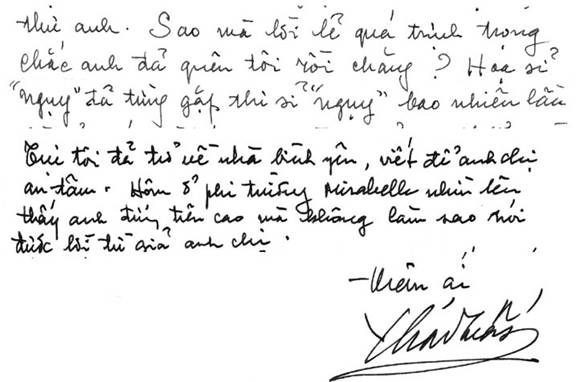 thư anh. Sao mà lời lẽ quá trịnh trọng
chắc anh đã quên tôi rồi chăng? Họa sĩ
"ngụy" đã từng gặp thi sĩ "ngụy" bao nhiêu lần
Tụi tôi đã trở về nhà bình yên, viết để anh chị
an tâm. Hôm ở phi trường Mirabelle nhìn lên
thấy anh đứng trên cao mà không làm sao nói
được lời từ giã anh chị.
-Thân ái